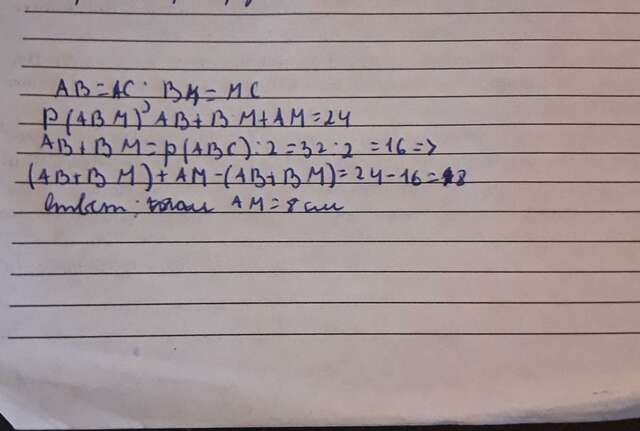 AB=AC; BM=MC
P(ABM) AB+BM+AM=24
AB+BM=p(ABC):2=32:2=16=>
(AB+BM)+AM-(AB+BM)=24-16=8
Ответ: AM=8см